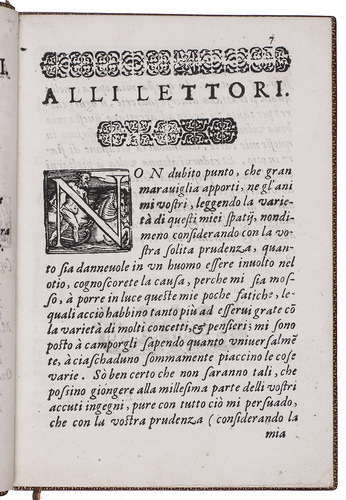 7
ALLI LETTORI.
NON dubito punto, che gran
marauiglia apporti, ne gl'ani
mi vostri, leggendo la varie-
tà di questi miei spatij, nondi-
meno considerando con la vo-
stra solita prudenza, quan-
to sia danneuole in vn huomo essere inuolto nel
otio, cognoscerete la causa, perche mi sia mos-
so, à porre in luce queste mie poche fatiche, le-
quali acciò habbino tanto più ad esserui grate cõ
la varietà di molti concetti, & pensieri; mi sono
posto à camporgli sapendo quanto vniuersalmẽ
te, à ciaschaduno sommamente piaccino le cose
varie. Sò ben certo che non saranno tali, che
possino giongere alla millesima parte delli vostri
accuti ingegni, pure con tutto ciò mi persuado,
che con la vostra prudenza (considerando la
mia